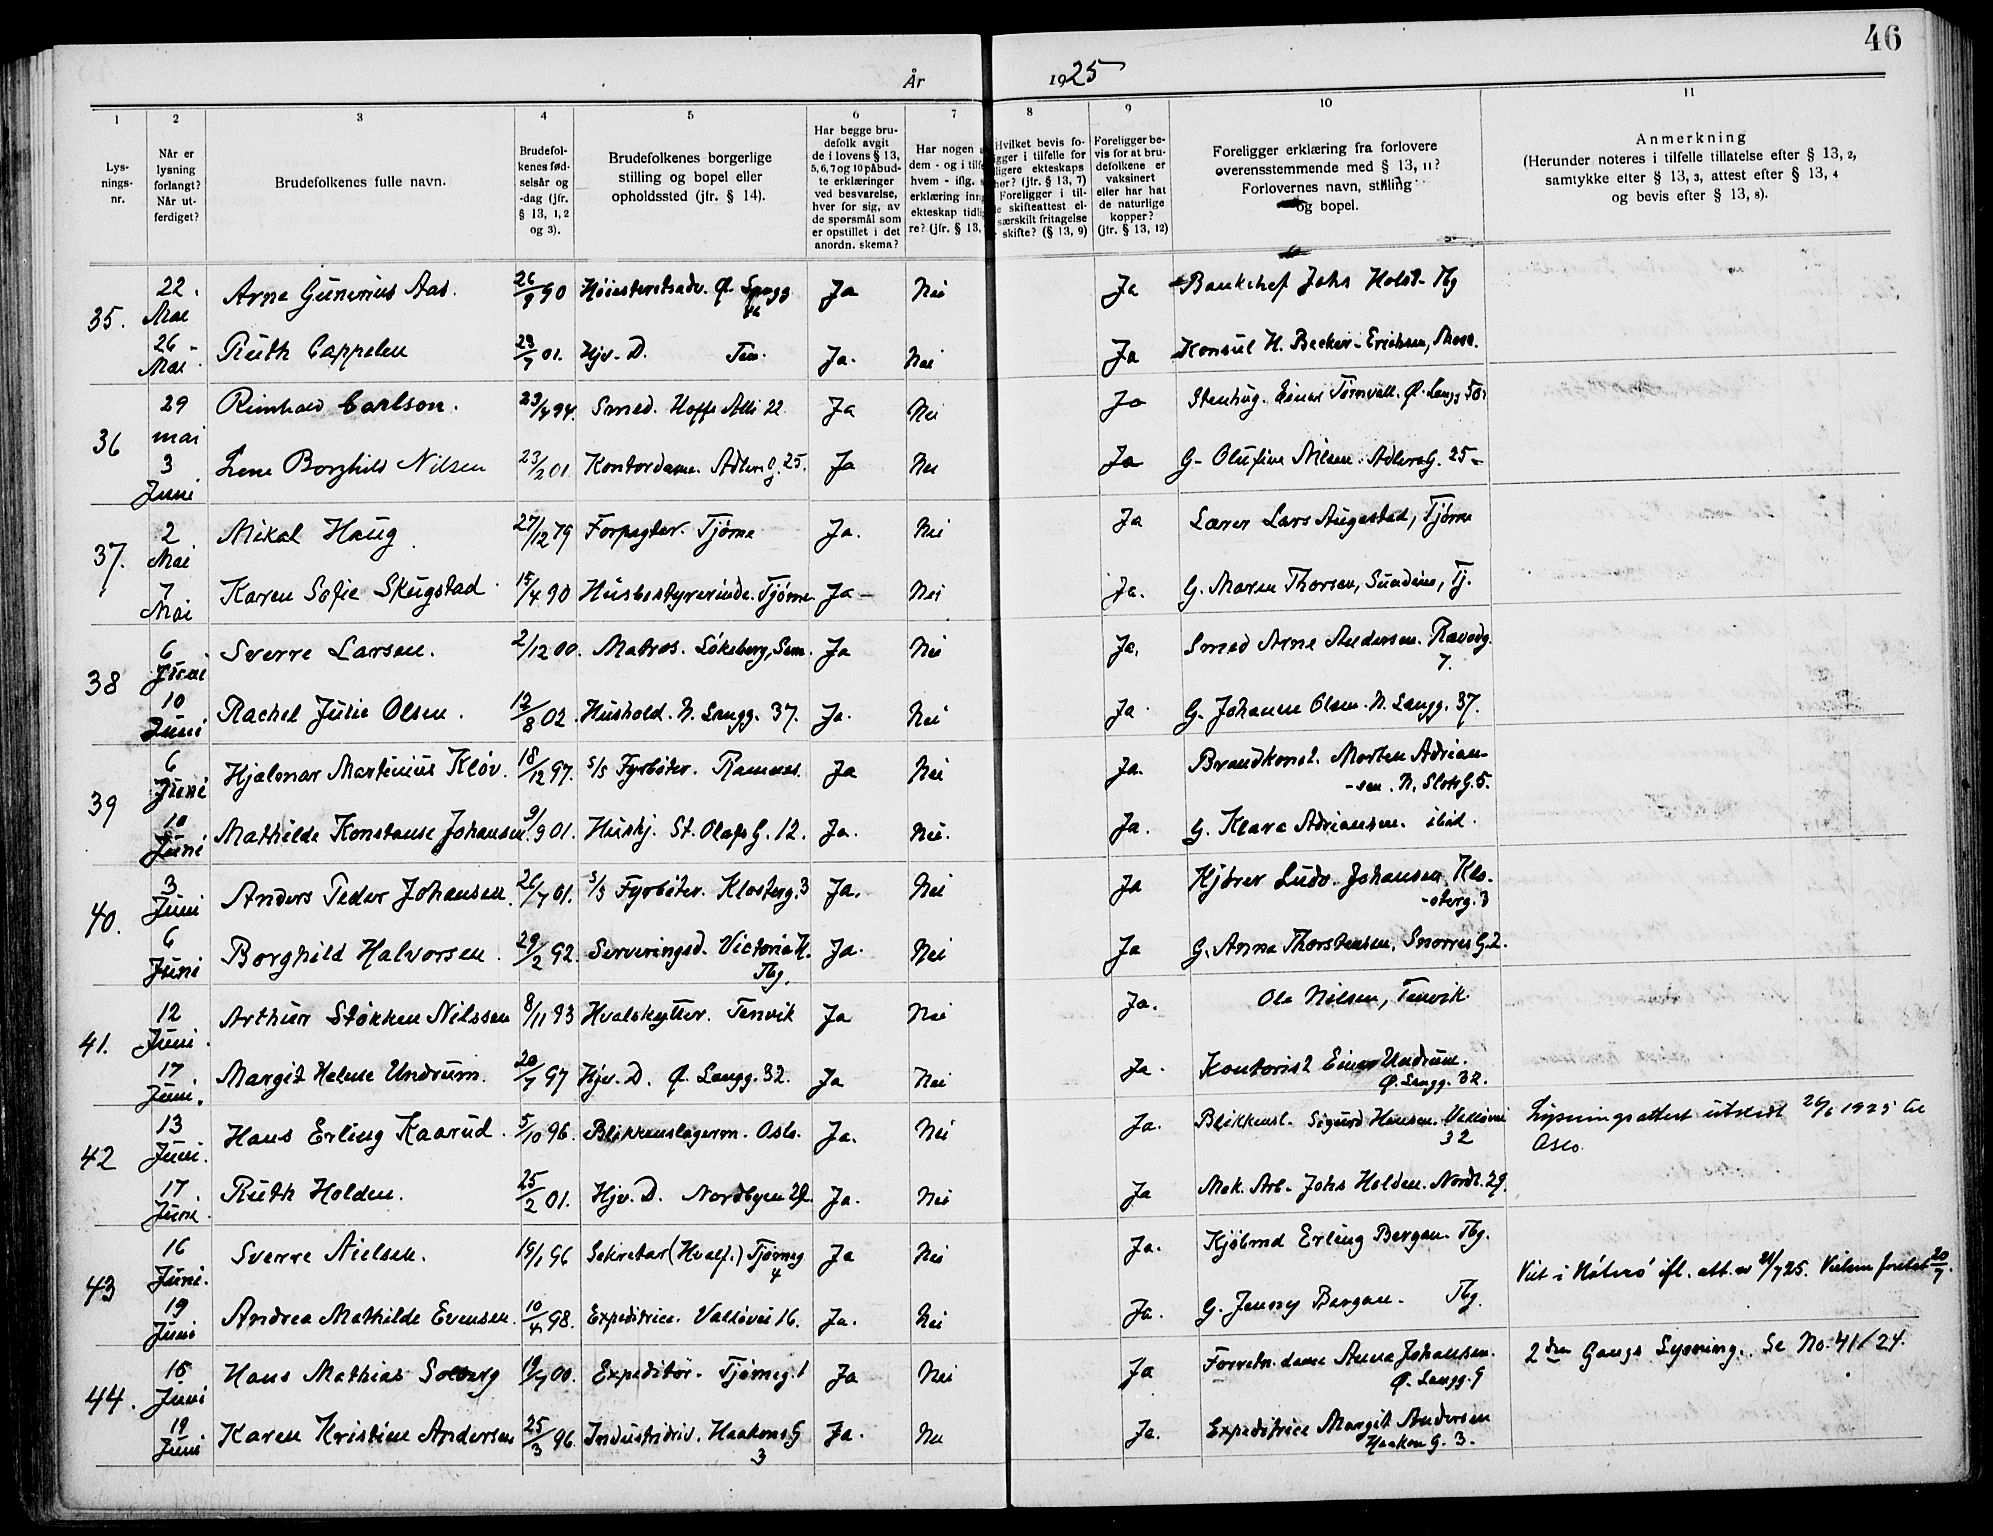 46
År 1925
1 2 3 4 5 6 7 8 9 10 11
Lys-
nings-
nr.
Når er
lysning
forlangt?
Når ut-
ferdiget?
Brudefolkenes fulle navn.
Brudefol-
kenes fød-
selsår og
-dag (jfr.
§ 13, 1, 2
og 3).
Brudefolkenes borgerlige
stilling og bopel eller
opholdssted (jfr. § 14).
Har begge bru-
defolk avgit
de i lovens § 13,
5, 6, 7 og 10 påbud-
te erklæringer
ved besvarelse,
hver for sig, av
de spørsmål som
er opstillet i det
anordn. skema?
Har nogen
dem - og i tilf
hvem - iflg.
erklæring inng
ekteskap tidli
re? (jfr. § 13,
Hvilket bevis fo-
igger i tilfelle for
ligere ekteskaps
hør? (jfr. § 13, 7)
Foreligger i til-
e skifteattest el-
særskilt fritagelse
skifte? (§ 13, 9)
Foreligger be-
vis for at bru-
defolkene er
vaksinert
eller har hat
de naturlige
kopper?
(jfr. § 13, 12)
Foreligger erklæring fra forlovere
overensstemmende med § 13, 11?
Forlovernes navn, stilling
og bopel.
Anmerkning
(Herunder noteres i tilfelle tillatelse efter § 13, 2,
samtykke efter § 13, 3, attest efter § 13, 4
og bevis efter § 13, 8).
35. 22. Mai Arne Gunerius Aas. 26/9 90 Høiesteretsadv. Ø. Langg Ja Nei Ja Bankchef Johs Holst - Tbg
26 - Mai Ruth Cappelen 23/7 01. Hjv. D. Ja. Nei Ja Konsul H. Becker-Erichsen,
36 29 mai Reinhold Carlson. 23/4 94. Smed. Hoffs Allé 22 Ja Nei Ja Stenhug. Einar Törnvall. Ø. Langg 50
3 Juni Lene Borghild Nilsen 23/2 01. Kontordame. Adlers G. 25. Ja Nei Ja G. Olufine Nilsen. Adlers G. 25 -
37. 2 Mai Mikal Haug 27/12 79 Forpagter. Tjøme Ja. Nei Ja Lærer Lars Augestad, Tjøme
7 Mai Karen Sofie Skugstad. 15/4 90 Husbestyrerinde. Tjøme Ja - Nei Ja. G. Maren Thorsen, Sundene, Tj.
38 6 Juni Sverre Larsen. 2/12 00. Matros. Løkeberg, Sem. Ja Nei Ja. Smed Arne Andersen. Rævedg.
7.
10 Juni Rachel Julie Olsen. 12/8 02. Hushold. N. Langg. 37. Ja. Nei Ja G. Johanne Olsen. N. Langg. 37.
39 6 Juni Hjalmar Martinius Kløv. 18/12 97. s/s Fyrbøter. Ramnes. Ja Nei Ja. Brandkonst. Morten Adrian-
-sen. N. Slots G. 5.
10 Juni Mathilde Konstanse Johansen 9/9 01. Hushj. St. Olafs G. 12. Ja. Nei. Ja. G. Klara Adriansen. ibid.
40. 3 Juni Anders Peder Johansen. 26/7 01. s/s Fyrbøter. Klosterg. 3 Ja. Nei Ja Kjører Ludv. Johansen Klo-
-sterg. 3
6 Juni Borghild Halvorsen. 29/2 92. Serveringsd. Victoria H. Ja. Nei Ja G. Anna Thorstensen, Snorres G. 2.
Tbg.
41. 12 Juni. Arthur Støkken Nilssen 8/11 93 Hvalskytter. Tenvik Ja Nei Ja. Ole Nilsen, Tenvik
17 Juni. Margit Helene Undrum. 20/7 97 Hjv. D. Ø. Langg. 32. Ja Nei Ja. Kontorist Einar Undrum.
Ø. Langg. 32.
42 13 Juni. Hans Erling Kaarud. 5/10 96. Blikkenslagerm. Oslo. Ja. Nei Ja. Blikkensl. Sigurd Hansen. Valløvei Lysningsattest utstedt 26/6 1925 til
32 Oslo.
17 Juni. Ruth Holden. 25/2 01. Hjv. D. Nordbyen 29 Ja. Nei Ja Mek. Arb. Johs Holden. Nordb. 29.
43 16 Juni. Sverre Nielsen. 15/1 96 Sekretær (Hvalf.) Tjømeg Ja Nei Ja. Kjøbmd Erling Bergan. Tbg.
4
Viet i Nøterø ifl. att. av 21/7 25. Vielsen foretat 20/7.
19 Juni Andrea Mathilde Evensen. 10/4 98. Expeditrice. Valløvei 16. Ja. Nei Ja. G. Jenny Bergan. Tbg.
44. 15 Juni Hans Mathias Solberg 19/7 00. Expeditør. Tjømeg. 1 Ja Nei Ja Forretn. dame Anna Johansen. 2den Gangs Lysning. Se No. 41/24.
Ø. Langg. 9
19 Juni Karen Kristine Andersen 25/3 96. Industridriv. Haakons G Ja. Nei Ja. Expeditrice Margit Andersen
3 Haakon G. 3.